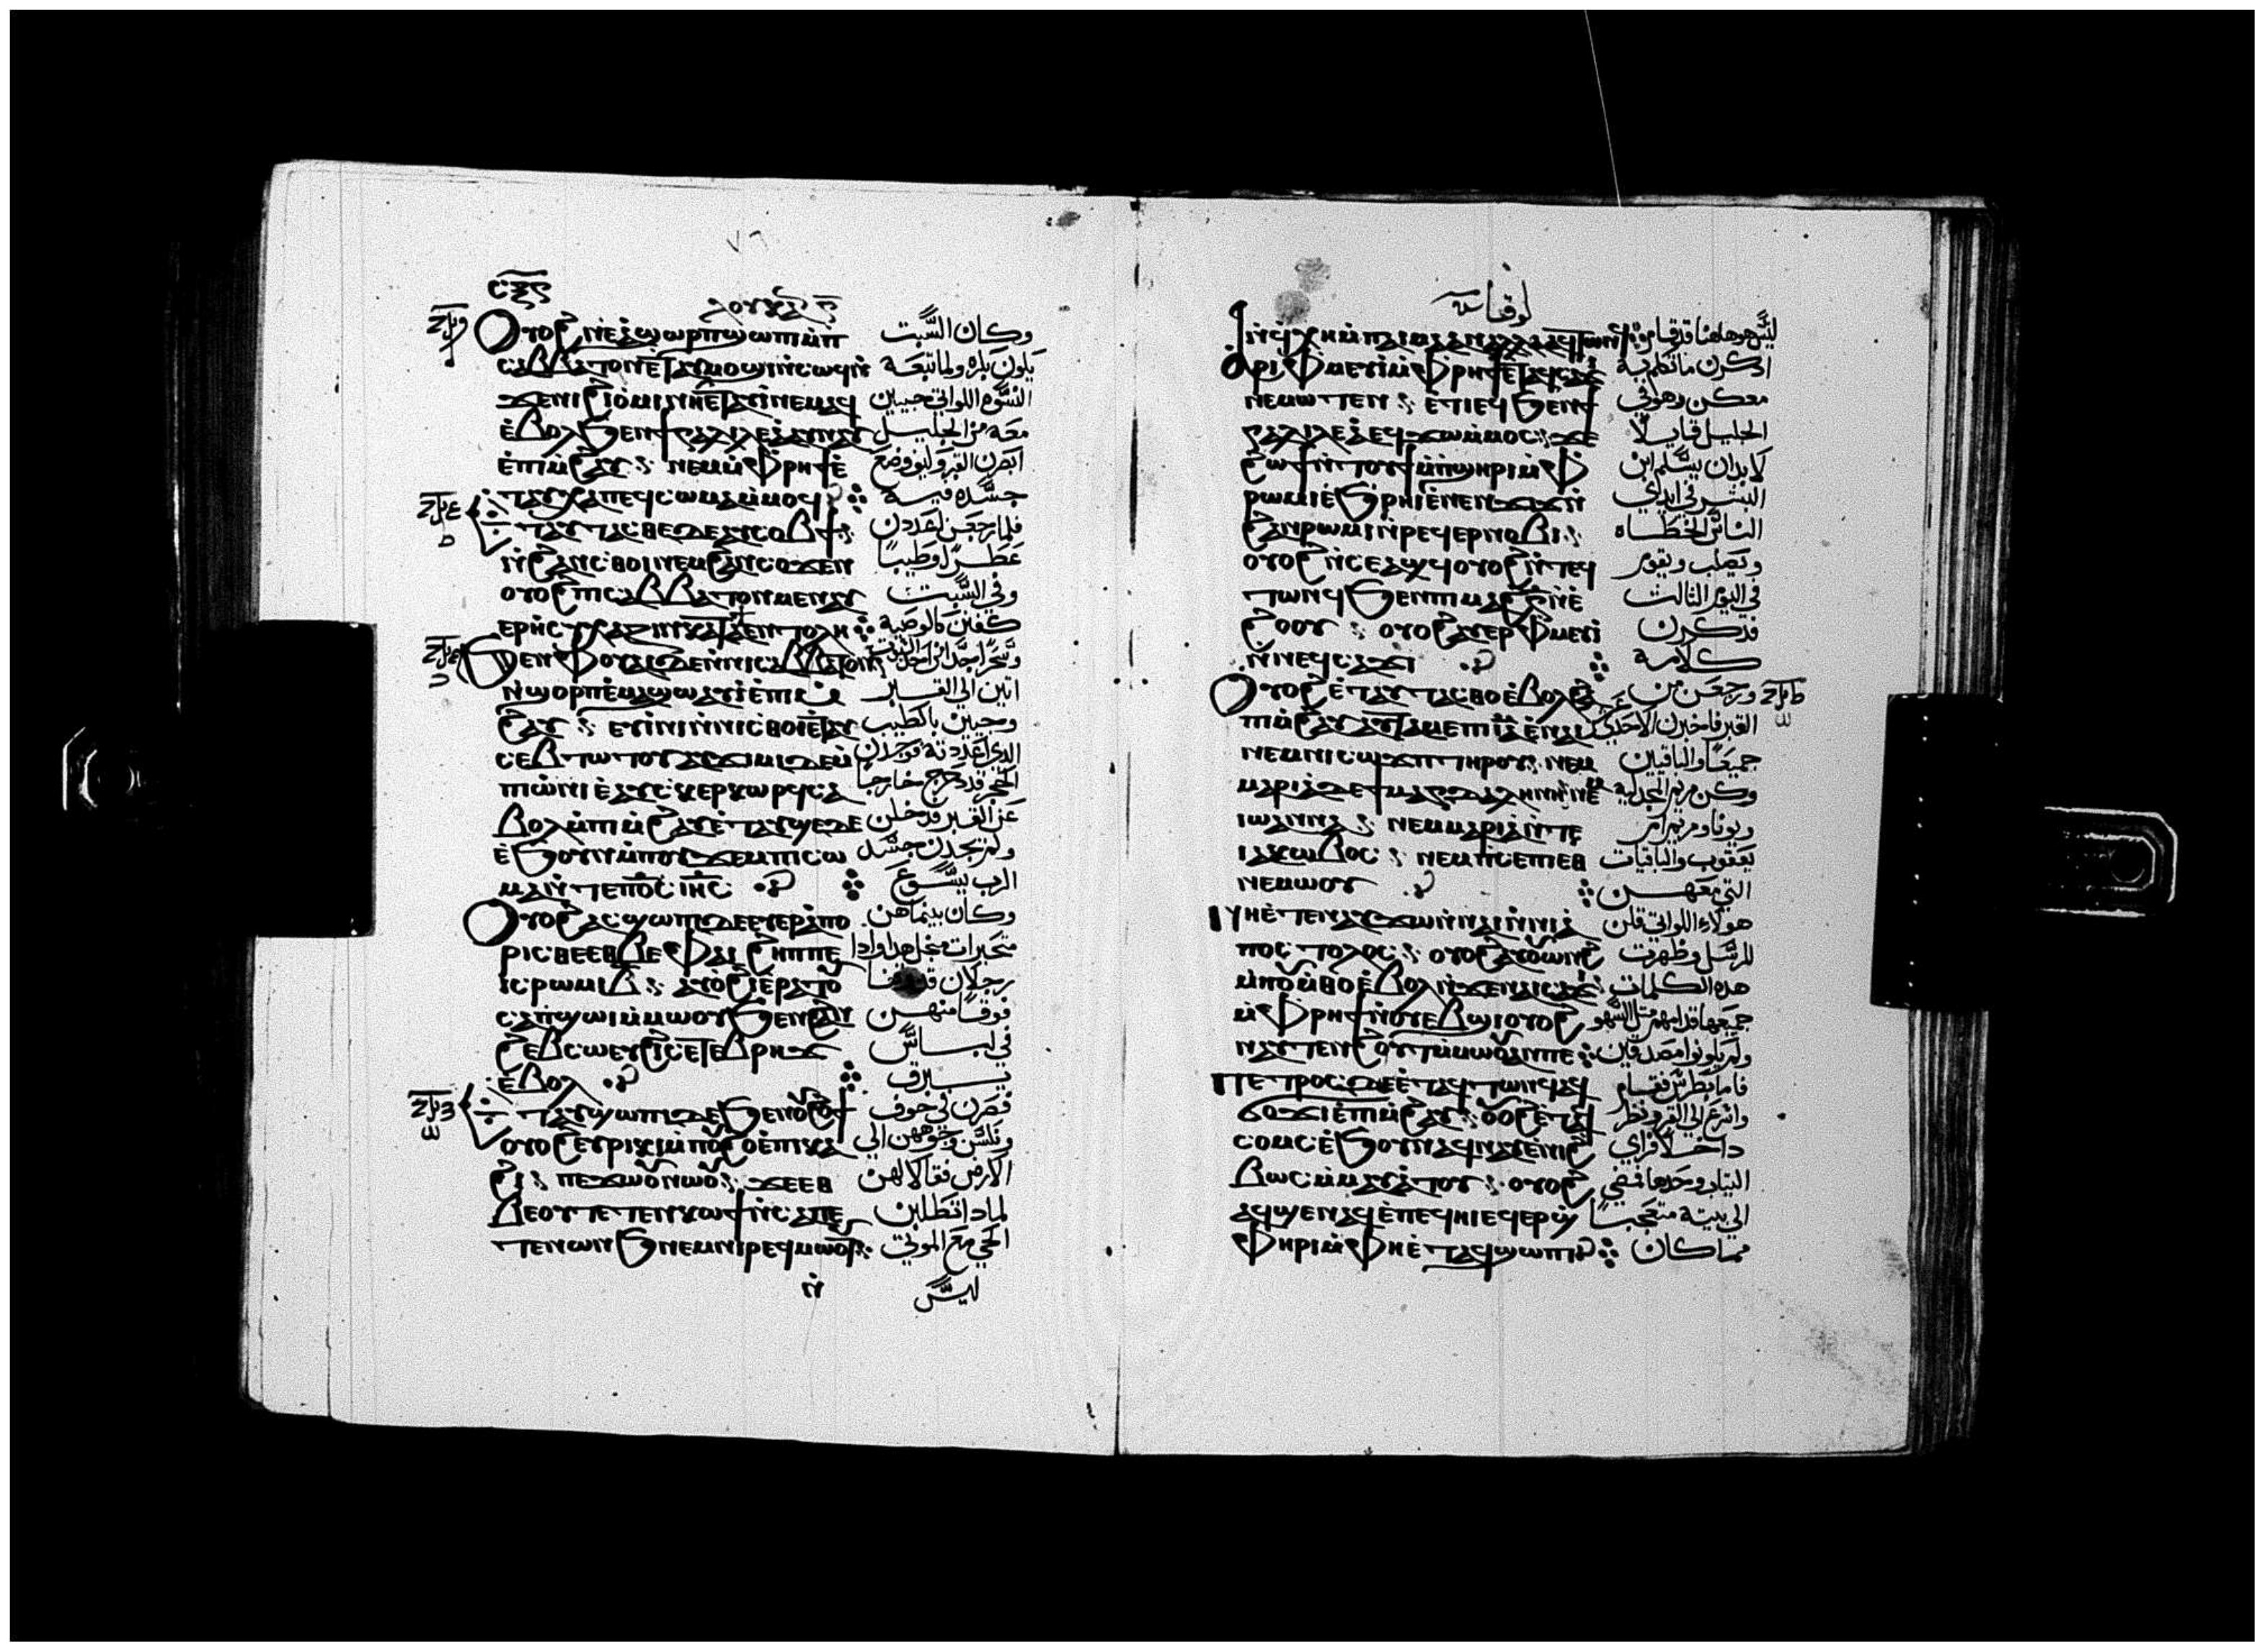 ⲗⲟⲩⲕⲁⲥ
ⲟⲩⲟϩ ⲛⲉ ⲁ ϣⲱⲣⲡ ϣⲱⲡⲓ ⲙⲡ وكان السَّبت
ⲥⲁⲃⲃⲁⲧⲟⲛ ⲉⲧⲁⲩⲙⲟϣⲓ ⲛⲥⲱϥ ⲛ
ϫⲉ ⲛⲓϩⲓⲟⲙⲓ ⲛⲏ ⲉⲧⲁⲩⲓ ⲛⲉⲙⲁϥ النسوه اللواتي جيين
ⲉⲃⲟⲗ ϧⲉⲛ ϯⲅⲁⲗⲓⲗⲉⲁ ⲁⲩⲛⲁⲩ معه من الجليل
ⲉⲡⲓⲙϩⲁⲩ ⲛⲉⲙ ⲙⲫⲣⲏϯ ⲉ
ⲧⲁⲩⲭⲁ ⲡⲉϥⲥⲱⲙⲁ ⲙⲙⲟϥ جسَّده فيه
ⲧⲁⲩⲧⲁⲥⲑⲉ ⲇⲉ ⲁⲩⲥⲟⲃϯ فلما رجعن اعددن
ⲛϩⲁⲛⲥⲑⲟⲓ ⲛⲉⲙ ϩⲁⲛⲥⲟϫⲉⲛ عطرًا وطيبًا
ⲟⲩⲟϩ ⲡⲓⲥⲁⲃⲃⲁⲧⲟⲛ ⲙⲉⲛ ⲁⲩ وفي السَّبت
ⲉⲣⲏⲥⲩⲭⲁⲍⲓⲛ ⲕⲁⲧⲁ ϯⲉⲛⲧⲟⲗⲏ كففن كالوصية
ϧⲉⲛ ⲫⲟⲩⲁⲓ ⲇⲉ ⲛⲛⲓⲥⲁⲃⲃⲁⲧⲟⲛ
ⲛϣⲟⲣⲡ ⲉⲙⲁϣⲱ ⲁⲩⲓ ⲉⲡⲓⲙ اتين الي القبر
ϩⲁⲩ ⲉⲩⲓⲛⲓ ⲛⲛⲓⲥⲑⲟⲓ ⲉⲧⲁⲩ وجيين بالطيب
ⲥⲉⲃⲧⲱⲧⲟⲩ ⲁⲩϫⲓⲙⲓ ⲇⲉ ⲙ الذي اعددنه فوجدن
ⲡⲱⲛⲓ ⲉⲁⲩⲥⲕⲉⲣⲕⲱⲣϥ ⲥⲁ الحجر قد دحرج خارجا
ⲃⲟⲗ ⲙⲡⲓⲙϩⲁⲩ ⲉⲧⲁⲩϣⲉ ⲇⲉ عن القبر فدخلن
ⲉϧⲟⲩⲛ ⲙⲡⲟⲩϫⲉⲙ ⲡⲓⲥⲱ ولم يجدن جسَّد
ⲙⲁ ⲛⲧⲉ ⲡⲟⲥ ⲓⲏⲥ الرب يسُّوع
ⲟⲩⲟϩ ⲁⲥϣⲱⲡⲓ ⲇⲉ ⲉⲩⲉⲣⲁⲡⲟ وكان بينما هن
ⲣⲓⲥⲑⲉ ⲉⲑⲃⲉ ⲫⲁⲓ ϩⲏⲡⲡⲉ متحيرات من اجل هذا واذا
ⲓⲥ ⲣⲱⲙⲓ ⲃ ⲁⲩⲟϩⲓ ⲉⲣⲁⲧⲟⲩ
ⲥⲁⲡϣⲱⲓ ⲙⲙⲱⲟⲩ ϧⲉⲛ ϩⲁⲛ فوقًا منهن
ϩⲉⲃⲥⲱ ⲉⲩϩⲓⲥⲉⲧⲉⲃⲣⲏϫ في لباسَّ
ⲉⲃⲟⲗ يبرق
ⲧⲁⲩϣⲱⲡⲓ ⲇⲉ ϧⲉⲛ ⲟⲩϩⲟϯ فصرن في خوف
ⲟⲩⲟϩ ⲉⲩⲣⲓⲕⲓ ⲙⲡⲟⲩϩⲟ ⲉⲡⲕⲁ ونكسن وجوههن الي
ϩⲓ ⲡⲉϫⲱⲟⲩ ⲛⲱⲟⲩ ϫⲉ ⲉⲑ الارض فقالا لهن
ⲃⲉⲟⲩ ⲧⲉⲧⲉⲛⲕⲱϯ ⲛⲥⲁ ⲡⲉ لماذا تطلبن
ⲧⲉⲛⲱⲛϧ ⲛⲉⲙ ⲛⲓⲣⲉϥⲙⲱⲟⲩⲧ الحي مع الموتي
ⲛ ليسَّ
لوقا
ⲛϥⲭⲏ ⲙⲡⲁⲓⲙⲁ ⲁⲛ ⲁⲗⲗⲁ ⲁϥⲧⲱⲛϥ ليسَّ هو هاهنا قد قام
ⲁⲣⲓⲫⲙⲉⲩⲓ ⲙⲫⲣⲏϯ ⲉⲧⲁϥⲥⲁϫⲓ اذكرن ما تكلم به
ⲛⲉⲙⲱⲧⲉⲛ ⲉⲧⲓ ⲉϥϧⲉⲛ ϯ معكن وهو في
ⲅⲁⲗⲓⲗⲉⲁ ⲉϥϫⲱ ⲙⲙⲟⲥ ϫⲉ الجليل قايلًا
ϩⲱϯ ⲛⲧⲟⲩϯ ⲙⲡϣⲏⲣⲓ ⲙⲫ لابد ان يسَّلم ابن
ⲣⲱⲙⲓ ⲉϧⲣⲏⲓ ⲉⲛⲉⲛϫⲓϫ ⲛ البشر في ايدي
ϩⲁⲛⲣⲱⲙⲓ ⲛⲣⲉϥⲉⲣⲛⲟⲃⲓ الناسَّ الخطاه
ⲟⲩⲟϩ ⲛⲥⲉⲁϣϥ ⲟⲩⲟϩ ⲛⲧⲉϥ ويصلب ويقوم
ⲧⲱⲛϥ ϧⲉⲛ ⲡⲓⲙⲁϩ ⲅ ⲛⲉ في اليوم الثالث
ϩⲟⲟⲩ ⲟⲩⲟϩ ⲁⲩⲉⲣⲫⲙⲉⲩⲓ فذكرن
ⲛⲛⲉϥⲥⲁϫⲓ كلامه
ⲟⲩⲟϩ ⲉⲧⲁⲩⲧⲁⲥⲑⲟ ⲉⲃⲟⲗ ورجعن من
ⲡⲓⲙϩⲁⲩ ⲁⲩⲧⲁⲙⲉ ⲡⲓⲓⲁ ⲉⲛⲁⲓ القبر فاخبرن الاحدي
ⲛⲉⲙ ⲡⲓⲥⲱϫⲡ ⲧⲏⲣⲟⲩ ⲛⲉ جميعًا والباقيين
ⲙⲁⲣⲓⲁ ⲇⲉ ϯⲙⲁⲅⲇⲁⲗⲓⲛⲏ ⲛⲉⲙ وكن مريم المجدليه
ⲓⲱⲁⲛⲛⲁ ⲛⲉⲙ ⲙⲁⲣⲓⲁ ⲛⲧⲉ ويونا ومريم ام
ⲓⲁⲕⲱⲃⲟⲥ ⲛⲉⲙ ⲡⲥⲉⲡⲓ ⲉⲑ يعقوب والباقيات
ⲛⲉⲙⲱⲟⲩ التي معهن
ⲛⲏ ⲉⲧⲉⲛⲁⲩϫⲱ ⲛⲛⲁⲓ ⲛⲛⲓⲁ هولاء اللواتي قلن
ⲡⲟⲥⲧⲟⲗⲟⲥ ⲟⲩⲟϩ ⲁⲩⲟⲩⲱⲛϩ للرسَّل وظهرت
ⲙⲡⲟⲩⲙⲑⲟ ⲉⲃⲟⲗ ⲛϫⲉ ⲛⲁⲓⲥⲁϫⲓ هذه الكلمات
ⲙⲫⲣⲏϯ ⲛⲟⲩⲉⲃϣⲓ ⲟⲩⲟϩ جميعها قدامهم مثل السَّهو
ⲛⲁⲩⲧⲉⲛϩⲟⲩⲧ ⲙⲙⲱⲟⲩ ⲁⲛ ⲡⲉ ولم يكونوا مصدقين
ⲡⲉⲧⲣⲟⲥ ⲇⲉ ⲉⲧⲁϥⲧⲱⲛϥ ⲁϥ فاما بطرسَّ فقام
ϭⲟϫⲓ ⲉⲡⲓⲙϩⲁⲩ ⲟⲩⲟϩ ⲉⲧⲁϥ واسرع الي القبر ونظر
ⲥⲟⲙⲥ ⲉϧⲟⲩⲛ ⲁϥⲛⲁⲩ ⲉⲛⲓϩ داخلًا فراي
ⲃⲱⲥ ⲙⲙⲁⲩⲁⲧⲟⲩ ⲟⲩⲟϩ الثياب وحدها فمضي
ⲁϥϣⲉⲛⲁϥ ⲉⲡⲉϥⲏⲓ ⲉϥⲉⲣϣ الي بيته متعجبًا
ⲫⲏⲣⲓ ⲙⲫⲏ ⲉⲧⲁϥϣⲱⲡⲓ مما كان